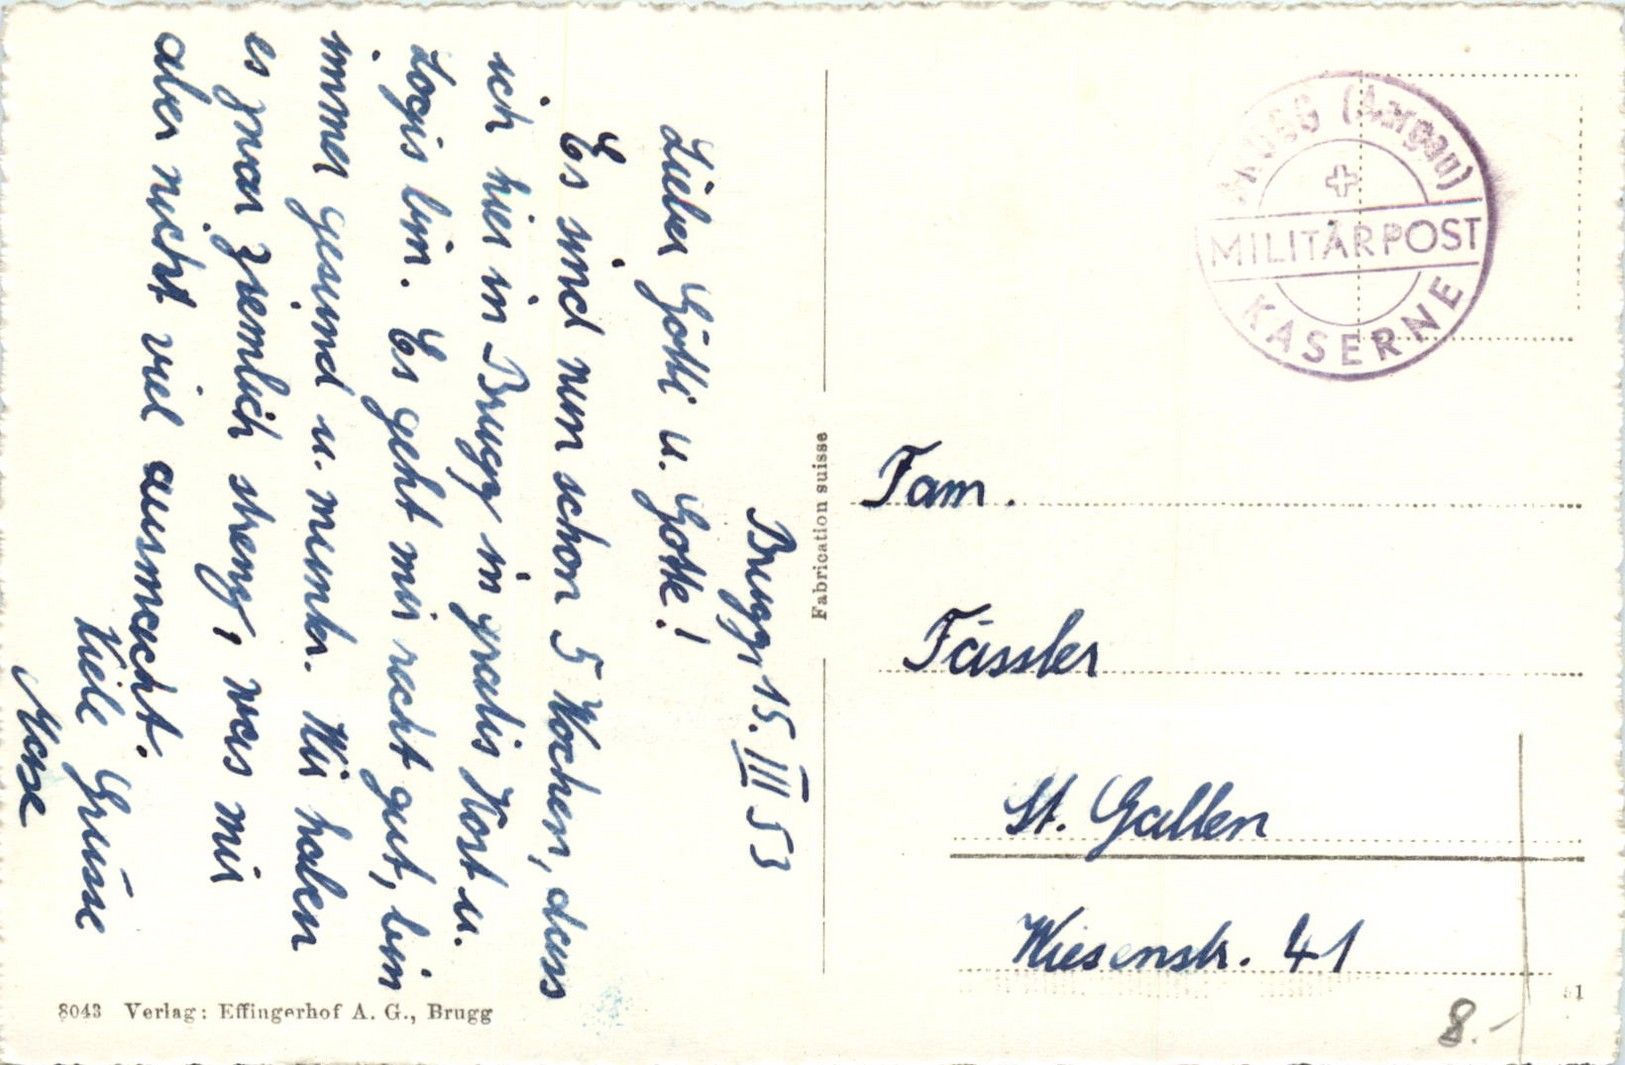 Brugg, 15. III 53
Lieber Götti u. Gotte!
Es sind nun schon 5 Wochen, dass
ich hier in Brugg in gratis Kost u.
Logis bin. Es geht mir recht gut, bin
immer gesund u. munter. Wir haben
es zwar ziemlich streng, was mir
aber nicht viel ausmacht.
Viele Grüsse
8043 Verlag: Effingerhof A. G., Brugg
Fabrication suisse
BRUGG (Aargau)
MILITÄRPOST
KASERNE
Fam.
Fässler
St. Gallen
Wiesenstr. 41
8.-